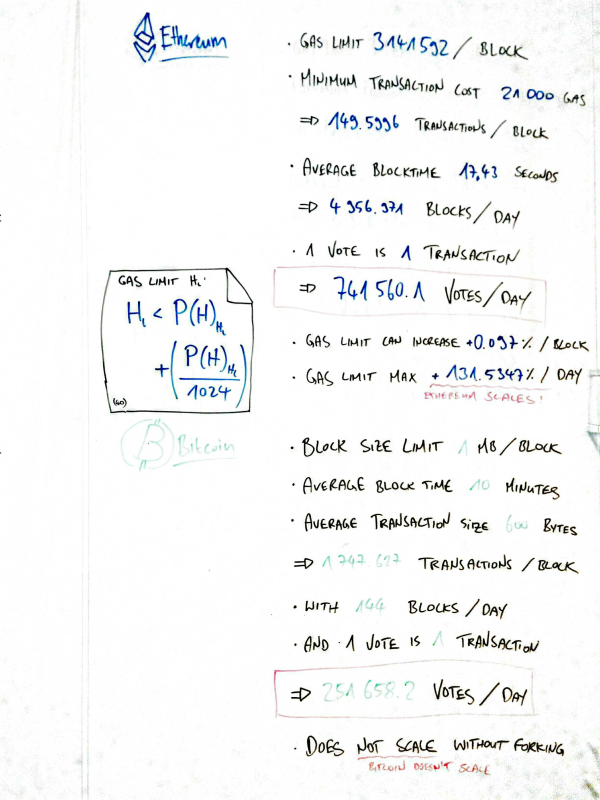 Ethereum
· GAS LIMIT 3141592 / BLOCK
· MINIMUM TRANSACTION COST 21 000 GAS
⇒ 149.5996 TRANSACTIONS / BLOCK
· AVERAGE BLOCKTIME 17,43 SECONDS
⇒ 4 956.971 BLOCKS / DAY
· 1 VOTE IS 1 TRANSACTION
⇒ 741 560.1 VOTES / DAY
· GAS LIMIT CAN INCREASE +0.097% / BLOCK
· GAS LIMIT MAX + 131.5347% / DAY
ETHEREUM SCALES!
GAS LIMIT HL:
HL < P(H)HL
+(P(H)HL
1024)
(40)
Bitcoin
· BLOCK SIZE LIMIT 1 MB / BLOCK
· AVERAGE BLOCK TIME 10 MINUTES
· AVERAGE TRANSACTION SIZE 600 BYTES
⇒ 1 747.627 TRANSACTIONS / BLOCK
· WITH 144 BLOCKS / DAY
· AND 1 VOTE IS 1 TRANSACTION
⇒ 251 658.2 VOTES / DAY
· DOES NOT SCALE WITHOUT FORKING
BITCOIN DOESN'T SCALE